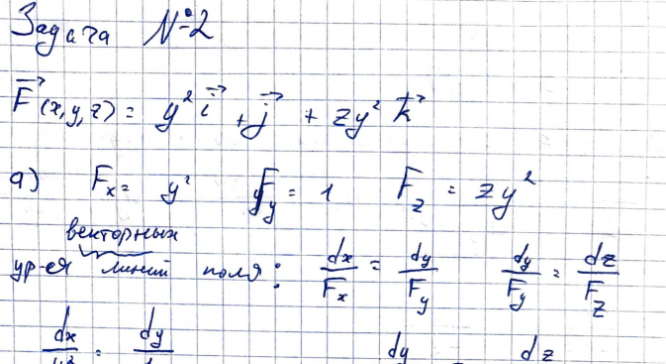 Задача №2
F⃗(x,y,z) = y² i⃗ + j⃗ + zy² k⃗
а) Fx = y² Fy = 1 Fz = zy²
векторных
ур-ея линий поля: dx/Fx = dy/Fy dy/Fy = dz/Fz
dx/y² = dy/1 dy = dz